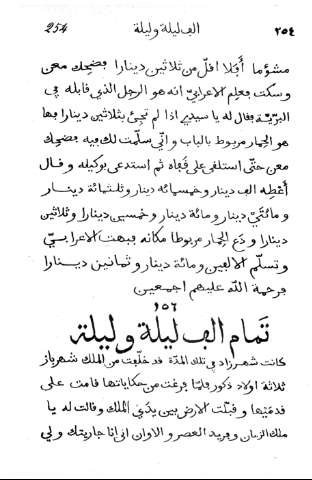 ٢٥٤ الف ليلة وليلة 254
مشؤما أَفَلا اقل من ثلاثين دينارا فضحك معن
وسكت فعلم الاعرابيّ انه هو الرجل الذي قابله في
البرّيّة فقال له يا سيدي اذا لم تجئ بثلاثين دينارا فها
هو الحمار مربوط بالباب واني سلّمت لك فيه فضحك
معن حتّى استلقى على قفاه ثم استدعى بوكيله وقال
أَعْطِه الف دينار وخمسمائة دينار وثلثمائة دينار
ومائتَيْ دينار ومائة دينار وخمسين دينارا وثلاثين
دينارا ودَع الحمار مربوطا مكانه فبهت الاعرابيّ
وتسلّم الالفين ومائة دينار وثمانين دينارا
فرحمة الله عليهم اجمعين
١٥٦
تَمام الف ليلة وليلة
كانت شهرزاد في تلك المدّة قد خلّفت من الملك شهرباز
ثلاثة اولاد ذكور فلمّا فرغت من حكاياتها قامت على
قدمَيْها وقبّلت الارض بين يدَيْ الملك وقالت له يا
ملك الزمان وفريد العصر والاوان انى انا جاريتك ولي